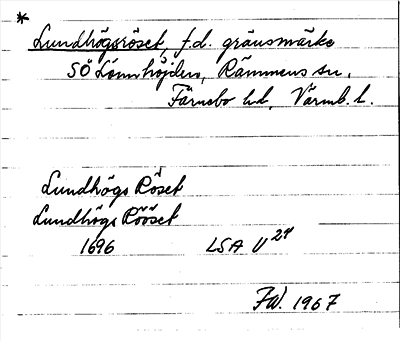 * Lundhögsröset, f.d. gränsmärke
SÖ Lönnhöjden, Rämmens sn,
Färnebo hd, Värml. l.
Lundhögs Röset
Lundhögs Rööset
1696 LSA V 24
F.W. 1967